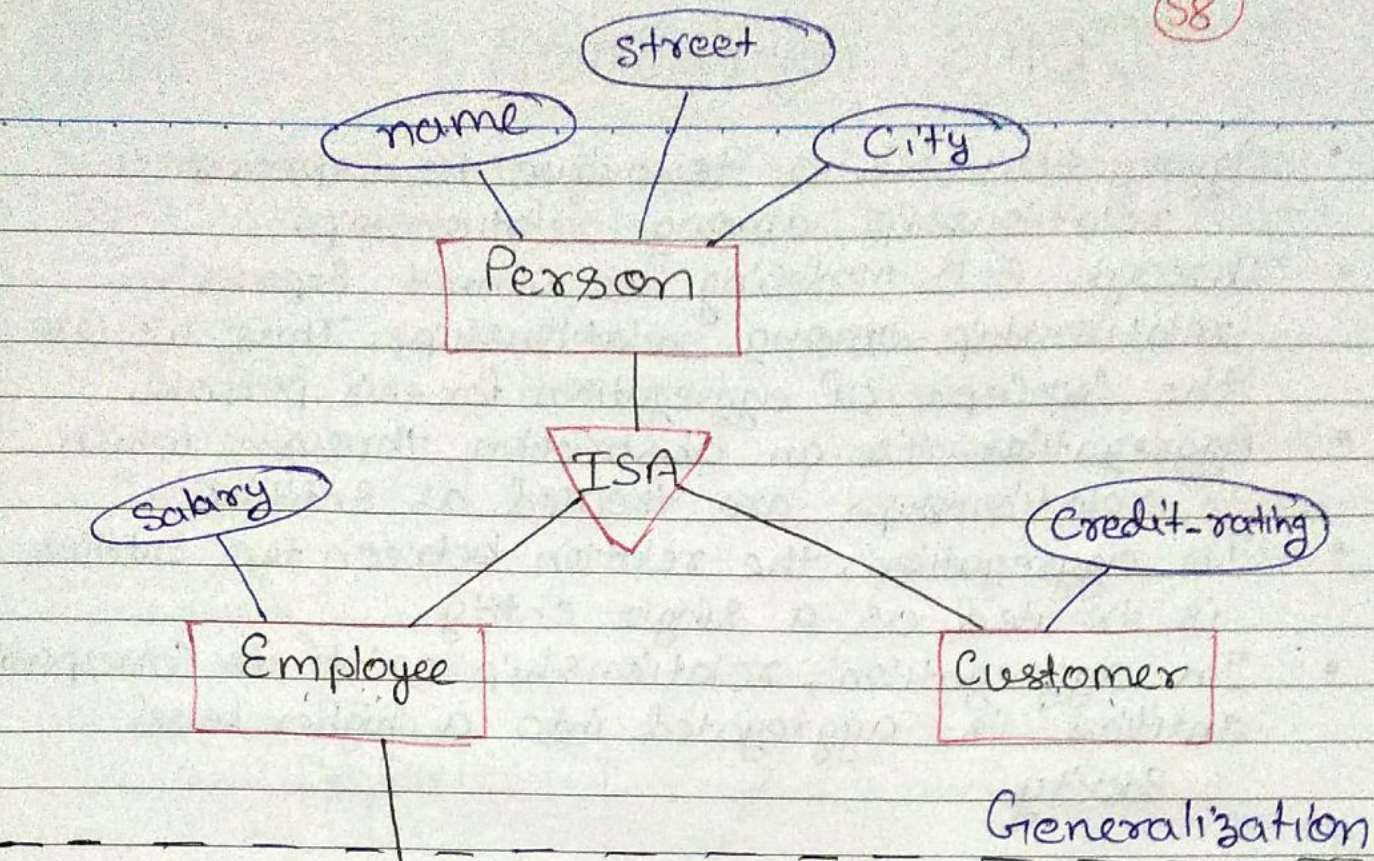 58
street
name
City
Person
ISA
Salary
Credit-rating
Employee
Customer
Generalization